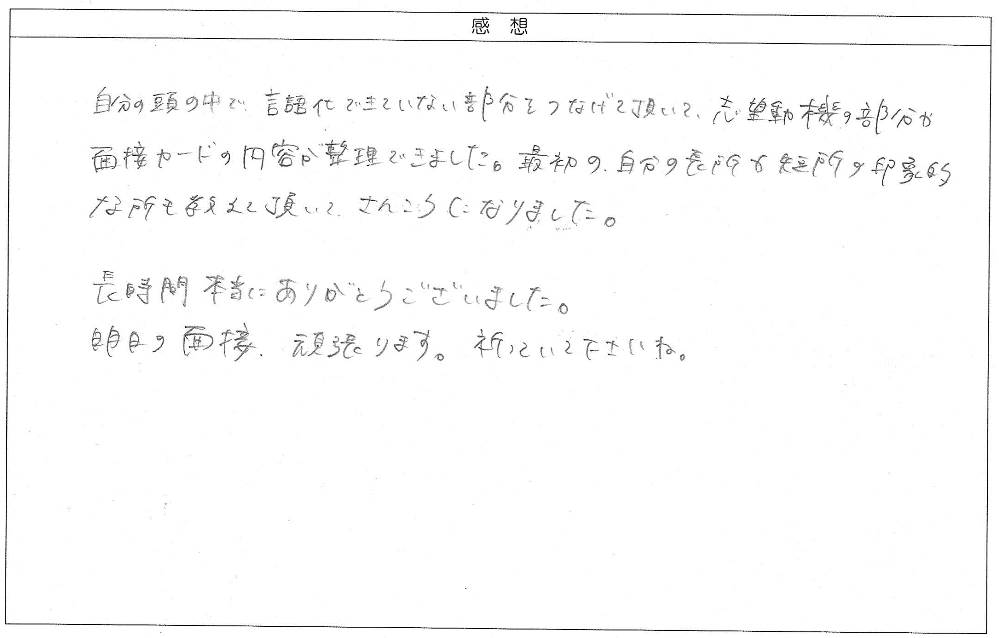 感想
自分の頭の中で、言語化できていない部分をつなげて頂いて、志望動機の部分や
面接カードの内容が整理できました。最初の、自分の長所や短所の印象的
な所も教えて頂いて、さんこうになりました。
長時間本当にありがとうございました。
明日の面接、頑張ります。祈っていて下さいね。